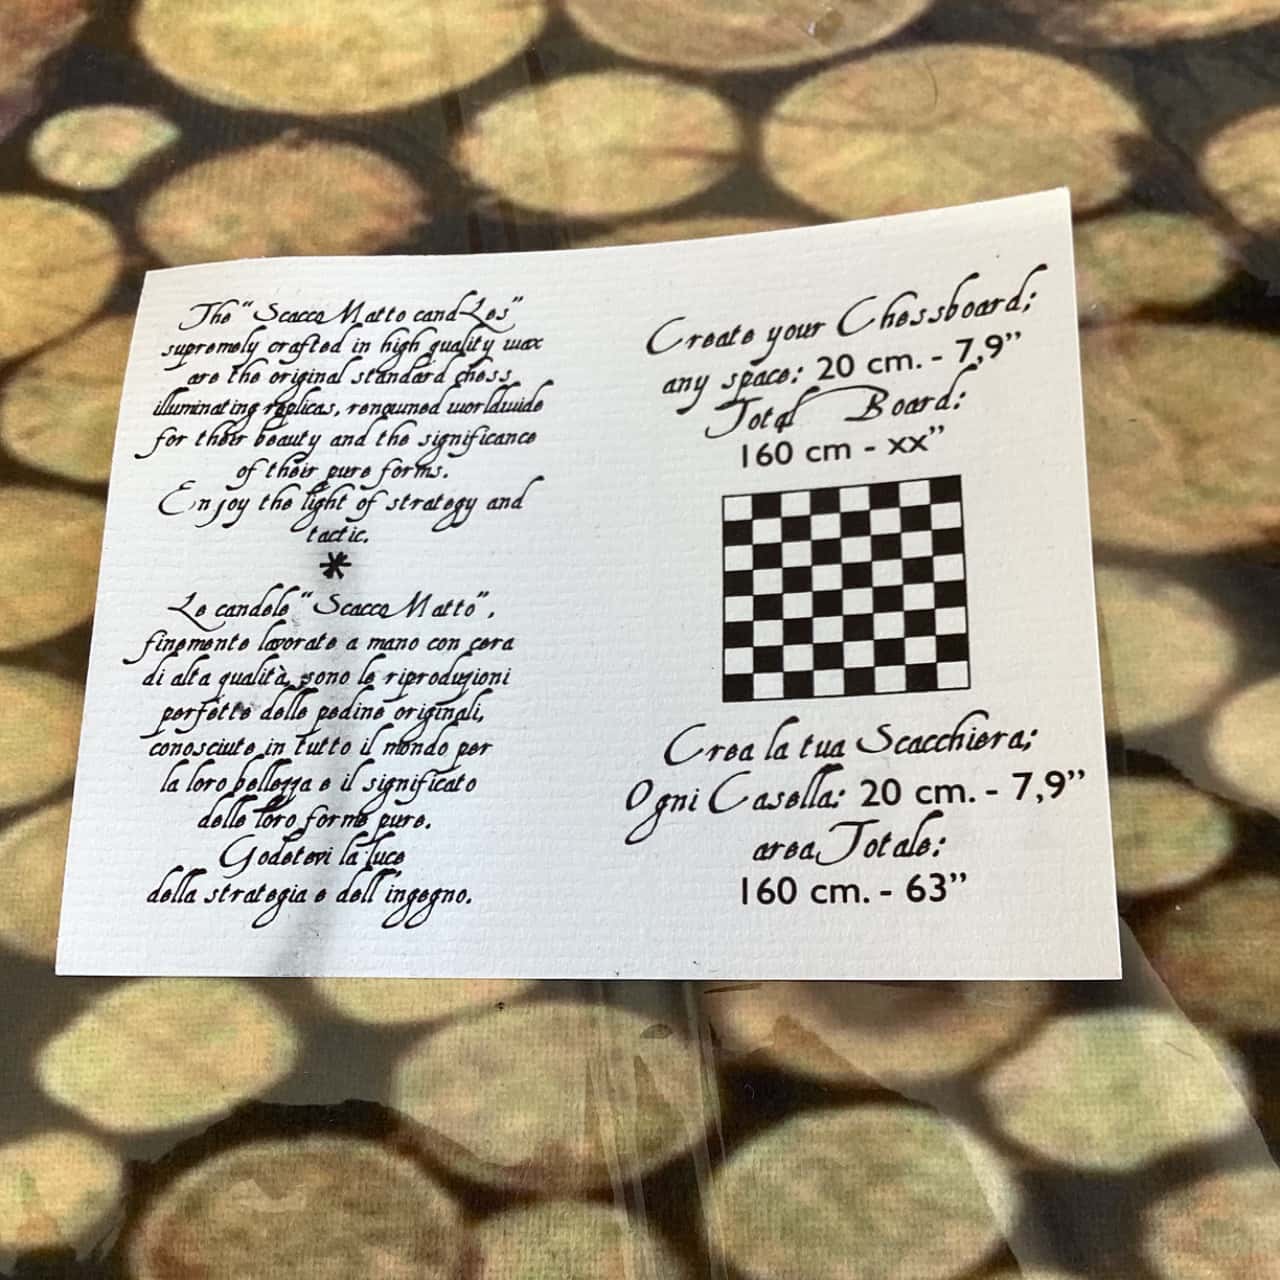 The "Scacco Matto candLes"
supremely crafted in high quality wax
are the original standard chess
illuminating replicas, renowned worldwide
for their beauty and the significance
of their pure forms.
Enjoy the light of strategy and
tactic.
*
Le candele "Scacco Matto",
finemente lavorate a mano con cera
di alta qualità, sono le riproduzioni
perfette delle pedine originali,
conosciute in tutto il mondo per
la loro bellezza e il significato
delle loro forme pure.
Godetevi la luce
della strategia e dell'ingegno.
Create your Chessboard;
any space: 20 cm. - 7,9"
Total Board:
160 cm - xx"
Crea la tua Scacchiera;
Ogni Casella: 20 cm. - 7,9"
area Totale:
160 cm. - 63"